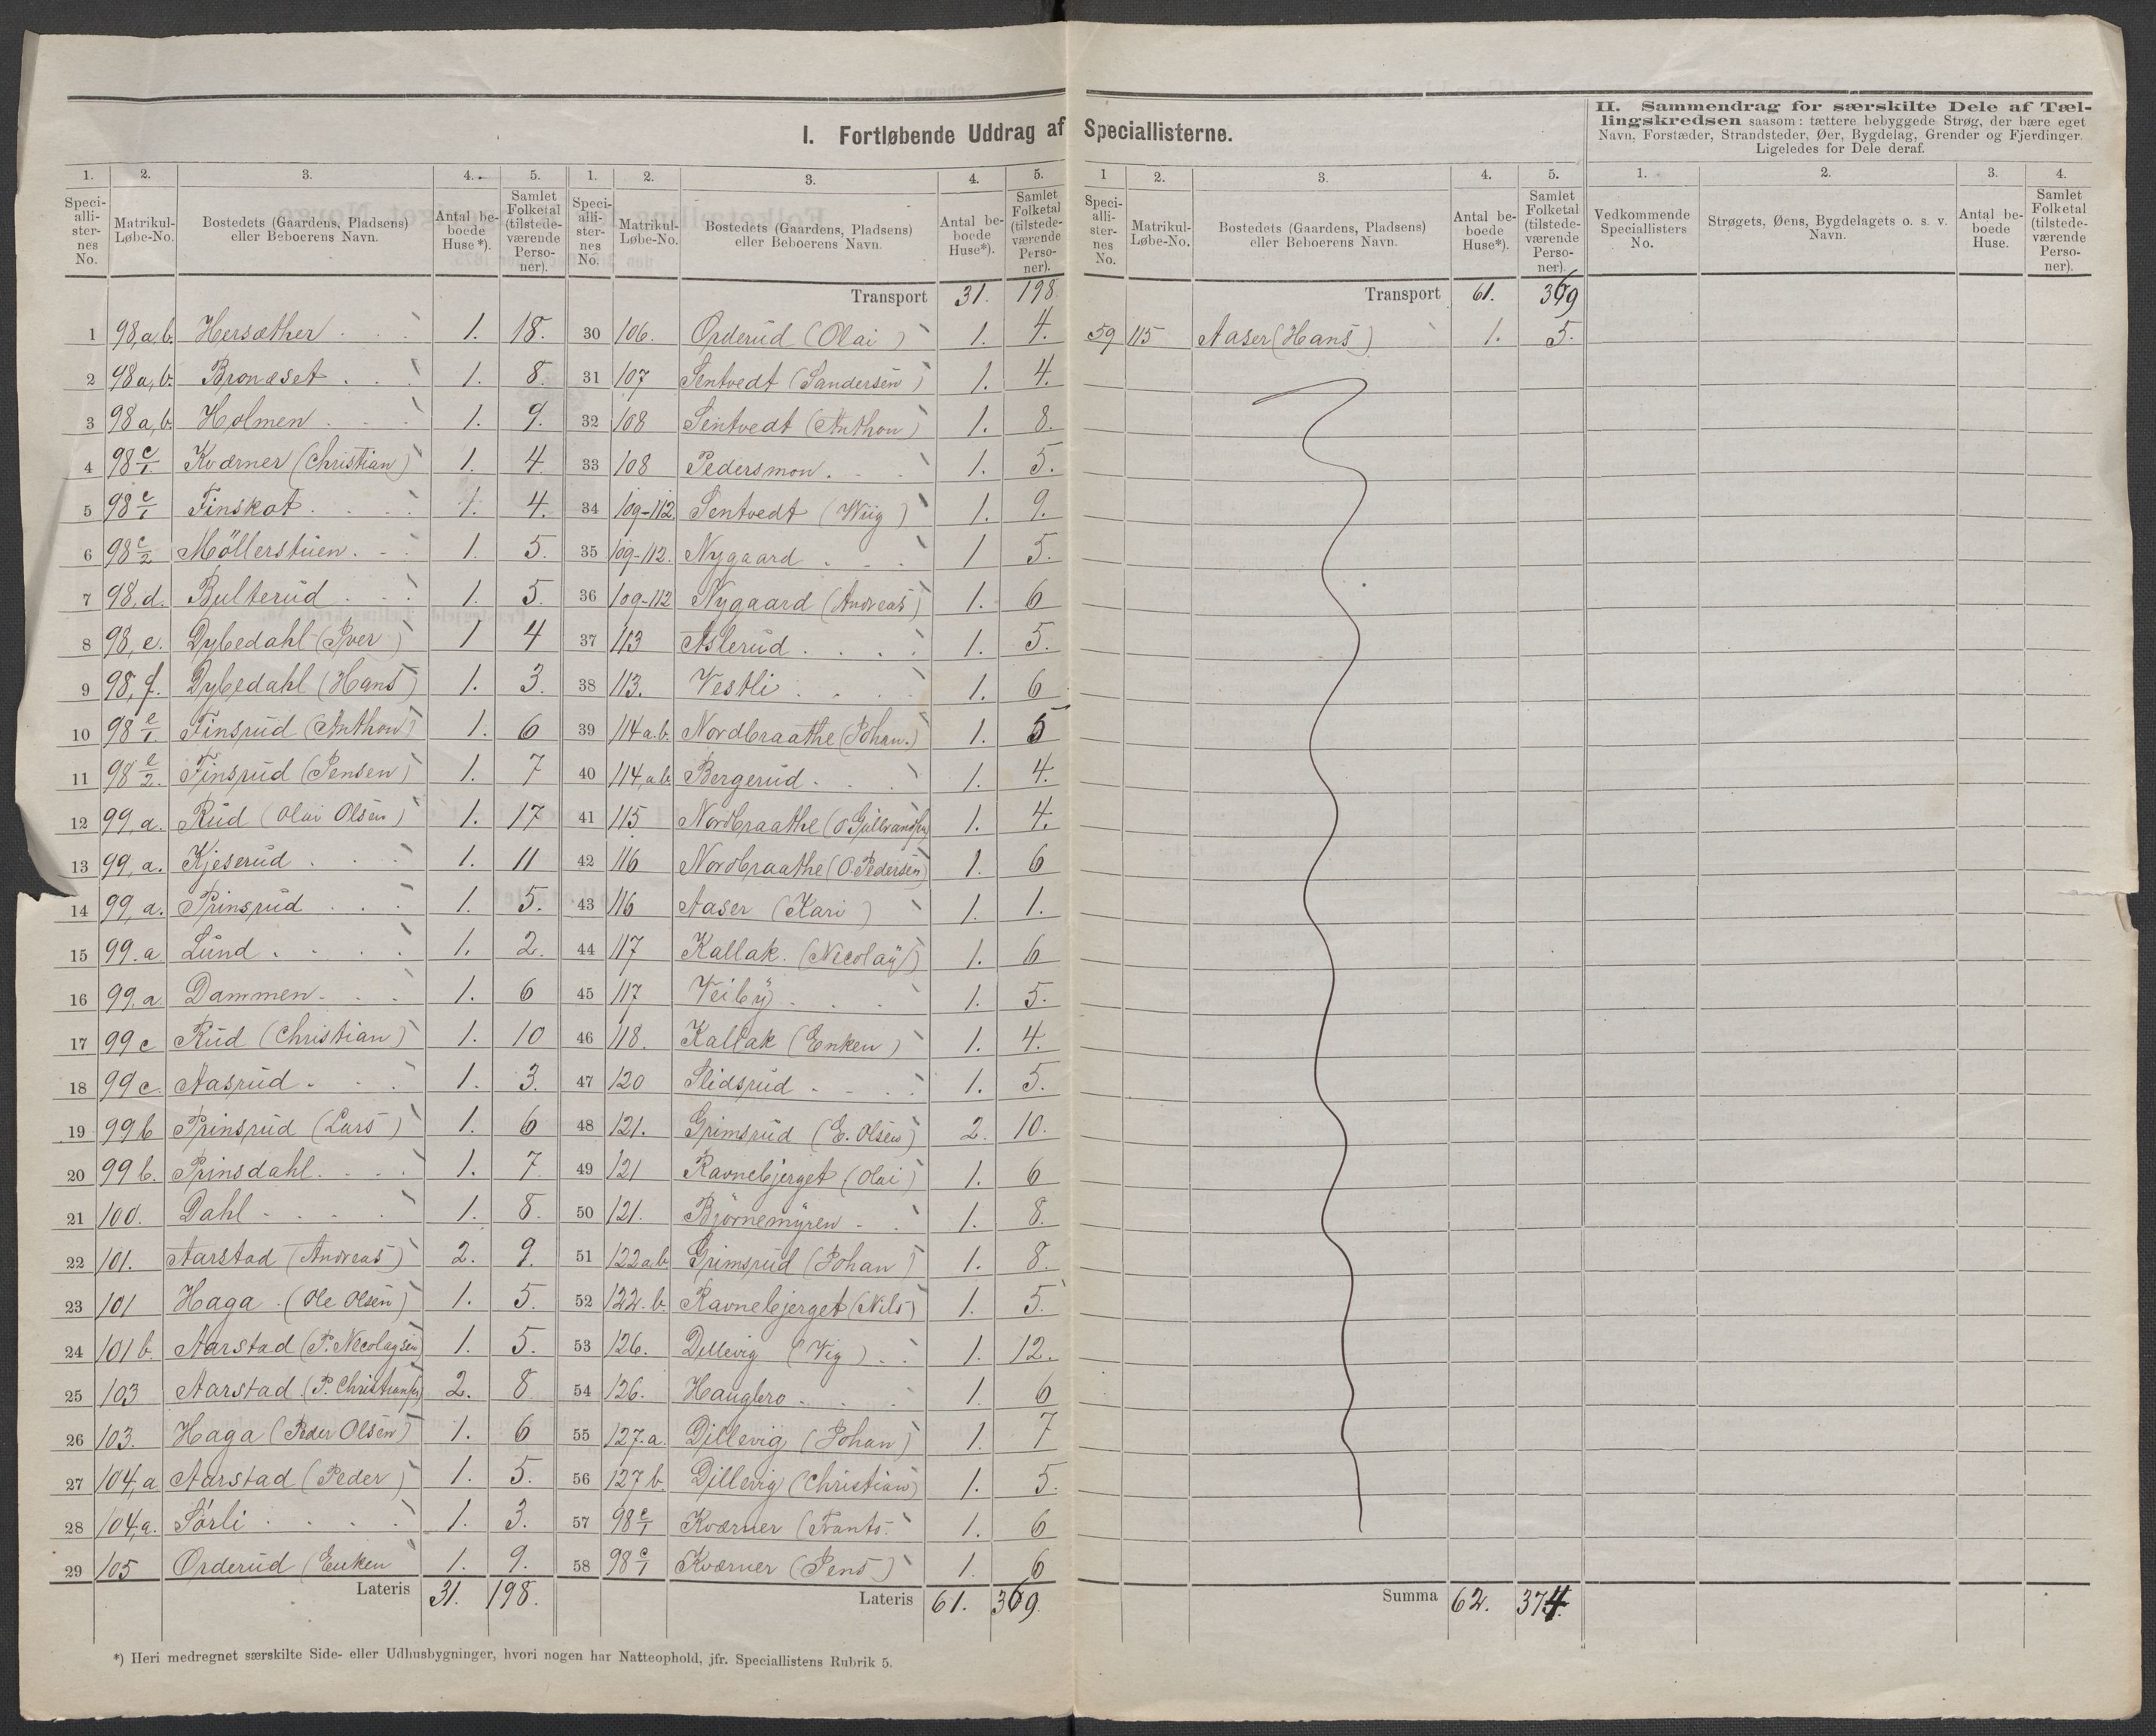 I. Fortløbende Uddrag af Speciallisterne.
II. Sammendrag for særskilte Dele af Tæl-
lingskredsen saasom: tættere bebyggede Strøg, der bære eget
Navn, Forstæder, Strandsteder, Øer, Bygdelag, Grender og Fjerdinger.
Ligeledes for Dele deraf.
1. 2. 3. 4. 5.
Speci-alli-ster-nes No. Matrikul-Løbe-No. Bostedets (Gaardens, Pladsens) eller Beboerens Navn. Antal be-boede Huse*). Samlet Folketal (tilstede-værende Perso-ner).
1 98,a,b. Hersæther 1. 18.
2 98a,b. Bronæset 1. 8.
3 98a,b. Holmen 1. 9.
4 98 c/1. Kværner (Christian) 1. 4.
5 98 c/1 Finskot 1. 4.
6 98 c/2 Möllerstuen 1. 5.
7 98,d. Bulterud 1. 5.
8 98,e. Dybedahl (Iver) 1 4
9 98,f. Dybedahl (Hans) 1. 3.
10 98 e/1. Finsrud (Anthon) 1. 6
11 98 e/2. Finsrud (Jensen) 1. 7
12 99,a. Rud (Olai Olsen) 1. 17
13 99,a. Kjeserud 1. 11
14 99,a. Prinsrud 1. 5.
15 99.a. Lund 1. 2.
16 99,a. Dammen 1. 6
17 99c Rud (Christian) 1. 10
18 99c. Aasrud 1. 3.
19 99b Prinsrud (Lars) 1. 6
20 99b. Prinsdahl 1. 7.
21 100. Dahl 1. 8.
22 101. Aarstad (Andreas) 2. 9.
23 101 Haga (Ole Olsen) 1. 5.
24 101b. Aarstad (P. Necolaysen) 1. 5.
25 103 Aarstad (P. Christiansen) 2. 8
26 103. Haga (Peder Olsen) 1. 6
27 104,a Aarstad (Peder) 1. 5.
28 104,a. Sörli 1. 3.
29 105 Orderud (Enken 1. 9.
Lateris 31. 198.
1. 2. 3. 4. 5.
Speci-alli-ster-nes No. Matrikul-Løbe-No. Bostedets (Gaardens, Pladsens) eller Beboerens Navn. Antal be-boede Huse*). Samlet Folketal (tilstede-værende Perso-ner).
Transport 31. 198.
30 106. Orderud (Olai) 1. 4.
31 107 Sentvedt (Sandersen) 1. 4.
32 108 Sentvedt (Anthon) 1. 8.
33 108 Pedersmon. 1. 5.
34 109-112. Sentvedt (Wiig) 1. 9.
35 109-112. Nygaard 1 5.
36 109-112 Nygaard (Andreas) 1. 6
37 113 Aslerud 1. 5.
38 113. Vestli 1. 6
39 114a.b. Nordbraathe (Johan.) 1. 5
40 114,a,b. Bergerud 1. 4.
41 115 Nordbraathe (O Gulbrandsen) 1. 4.
42 116 Nordbraathe (O. Pedersen) 1. 6
43 116 Aaser (Kari) 1. 1.
44 117 Kallak. (Necolay) 1. 6
45 117 Veiby 1. 5.
46 118. Kallak (Enken) 1. 4.
47 120 Slidsrud 1. 5.
48 121. Grimsrud (E. Olsen) 2. 10.
49 121 Ravnebjerget (Olai) 1. 6
50 121. Björnemyren 1. 8.
51 122a.b Grimsrud (Johan) 1. 8.
52 122.b. Ravnebjerget (Nils) 1. 5.
53 126. Dillevig (Vig) 1. 12.
54 126. Haugbro 1. 6
55 127.a. Dillevig (Johan) 1. 7
56 127b. Dillevig (Christian) 1. 5.
57 98 c/1 Kværner (Frants. 1. 6
58 98 c/1 Kværner (Jens) 1. 6
Lateris 61. 369.
1 2. 3. 4. 5.
Speci-alli-ster-nes No. Matrikul-Løbe-No. Bostedets (Gaardens, Pladsens) eller Beboerens Navn. Antal be-boede Huse*). Samlet Folketal (tilstede-værende Perso-ner).
Transport 61. 369
59 115 Aaser (Hans) 1. 5.
Summa 62. 374.
1. 2. 3. 4.
Vedkommende Speciallisters No. Strøgets, Øens, Bygdelagets o. s. v. Navn. Antal be-boede Huse. Samlet Folketal (tilstede-værende Perso-ner).
*) Heri medregnet særskilte Side- eller Udhusbygninger, hvori nogen har Natteophold, jfr. Speciallistens Rubrik 5.